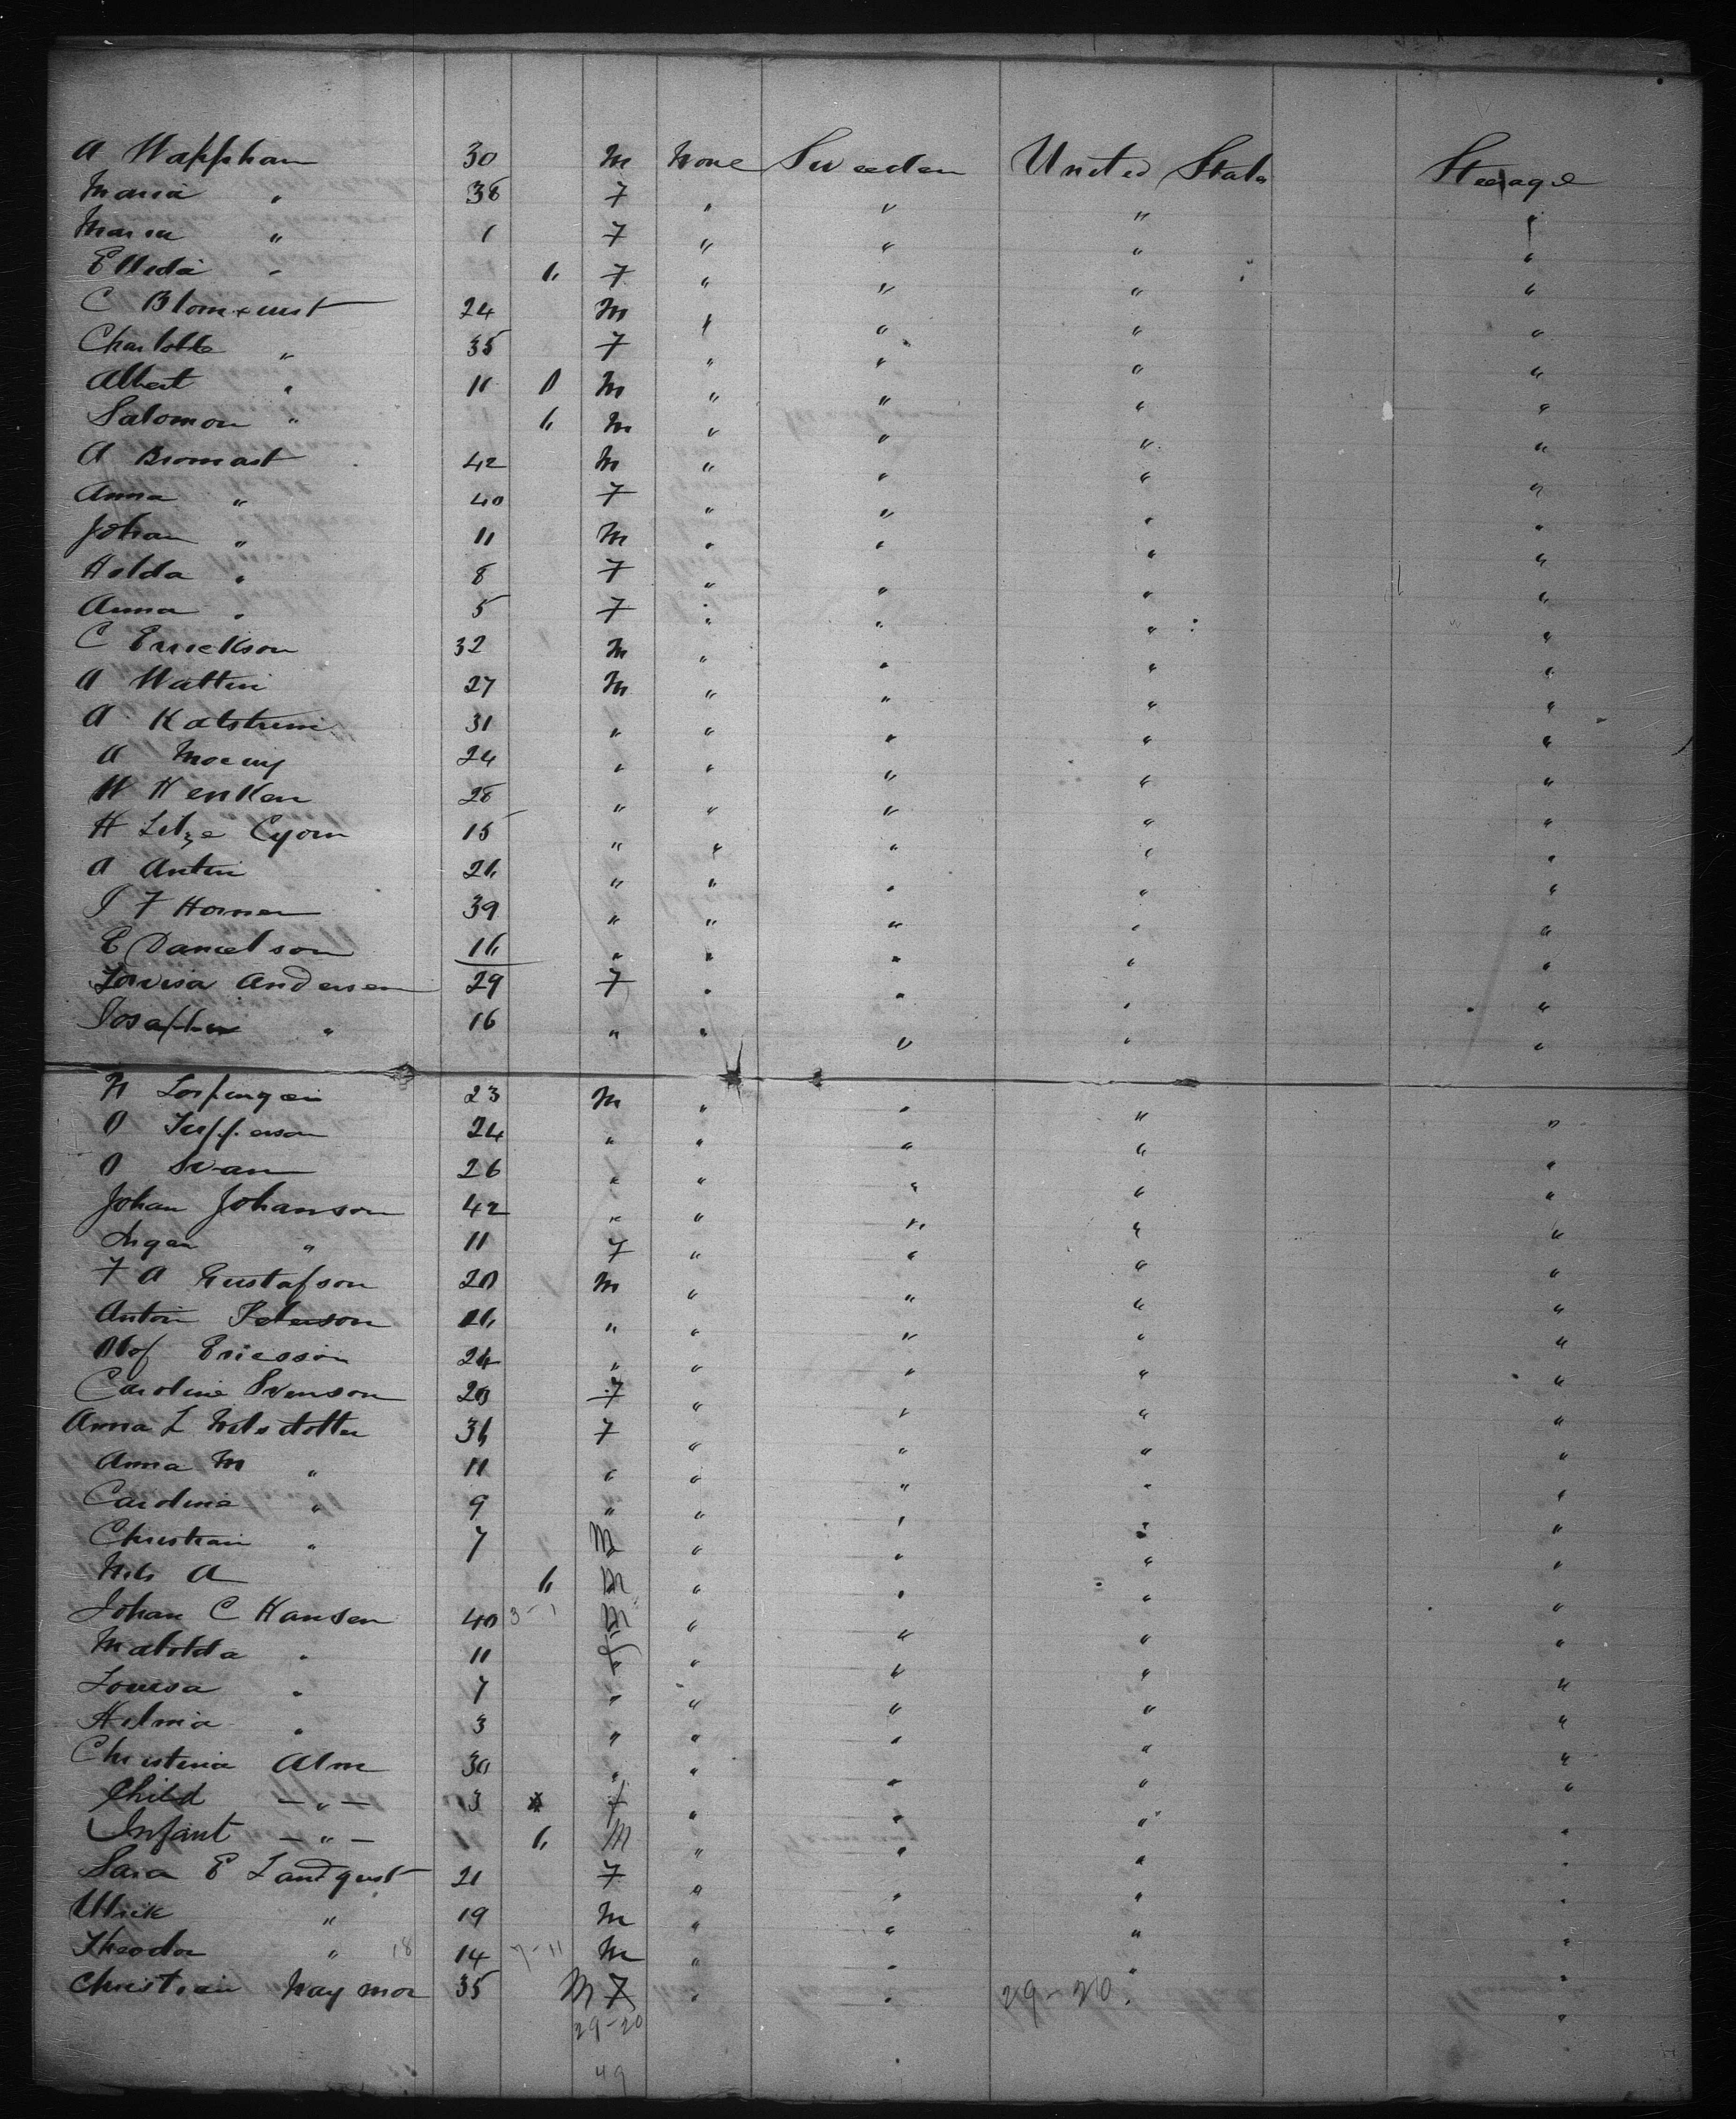 A Wappham 30 M None Sweeden United State Steerage
Maria " 38 7 " " " "
Maria " 1 7 " " " "
Elleda " 6 7 " " " "
C Blomquist 24 M " " " "
Charlotte " 35 7 " " " "
Albert " 11 M " " " "
Salomon " 6 M " " " "
A Bromast 42 M " " " "
Anna " 40 7 " " " "
Johan " 11 M " " " "
Holda " 8 7 " " " "
Anna " 5 7 " " " "
C Errickson 32 M " " " "
A Mattin 27 M " " " "
A 31 " " " " "
A 24 " " " " "
W Henken 28 " " " " "
H 15 " " " " "
A Antin 26 " " " " "
J F Horner 39 " " " " "
E Danielson 16 " " " " "
Lovisa Andersen 29 7 " " " "
Josaphin " 16 " " " " "
N 23 M " " " "
O 24 " " " " "
O Svan 26 " " " " "
Johan Johanson 42 " " " " "
" 11 7 " " " "
F A Gustafson 20 M " " " "
Anton Peterson " " " " "
Olof Ericsson 24 " " " " "
Caroline Svenson 20 7 " " " "
Anna L Nilsdotter 36 7 " " " "
Anna M " 11 " " " " "
Caroline " 9 " " " " "
Christian " 7 M " " " "
Nils A 6 M " " " "
Johan C Hansen 40 3-1 M " " " "
Matilda " 11 f " " " "
Lovisa " 7 " " " " "
Hilmia " 3 " " " " "
Christina Alm 30 " " " " "
Child - " - 3 f " " " "
Infant - " - 6 M " " " "
Sara E Landqust 21 7 " " " "
Ulrik " 19 M " " " "
Theodor " 18 14 7-11 M " " " "
Christian Naymor 35 M 7 " " 29-20 "
29-20
49